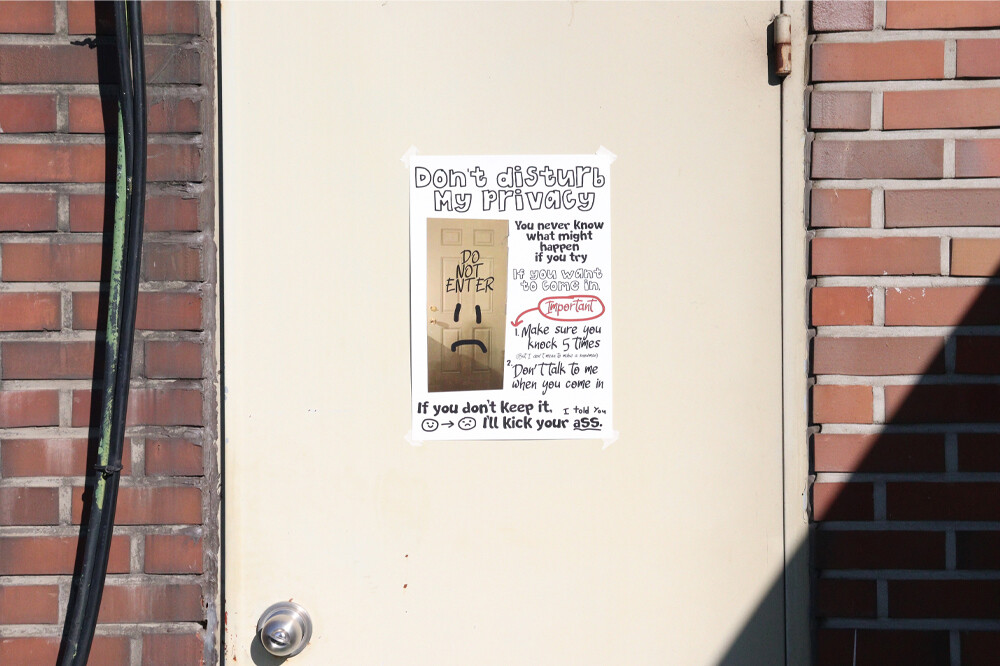 Don't disturb
My privacy
You never know
what might
happen
if you try
DO
NOT
ENTER
If you want
to come in.
Important
1. Make sure you
knock 5 times
2. Don't talk to me
when you come in
If you don't keep it.
I told you
I'll kick your ass.